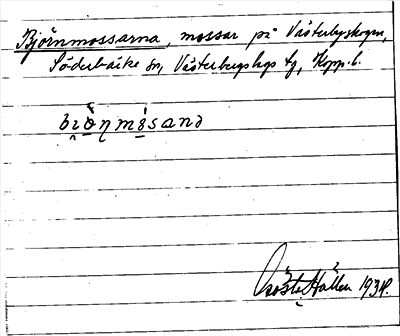 Björnmossarna, mossar på Västerbyskogen,
Söderbärke sn, Västerbergslags tg, Kopp. l.
Gösta Hallén 1934.